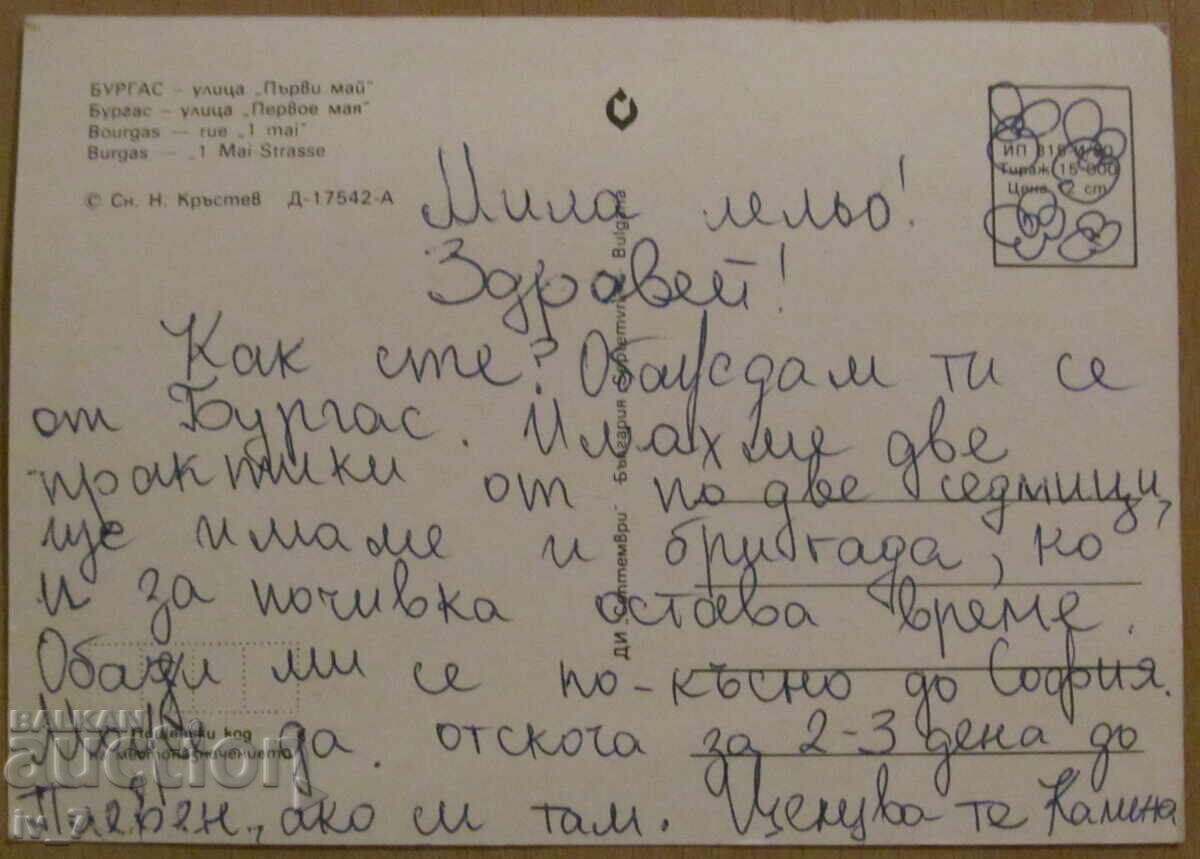 БУРГАС – улица „Първи май"
Бургас – улица „Первое мая"
Bourgas — rue „1 mai"
Burgas — „1 Mai-Strasse
© Сн. Н. Кръстев Д-17542-А
ИП
Тираж 15 000
Цена 2 ст
ДИ „Септември" България Septemvri Bulgaria
Мила лельо!
Здравей!
Как сте? Обаждам ти се
от Бургас. Имахме две
практики от по две седмици,
ще имаме и бригада, но
и за почивка остава време.
Обади ми се по-късно до София.
Мога да отскоча за 2-3 дена до
Плевен, ако си там. Целува те Калина
Пощенски код
на местоназначението
BALKAN
auction